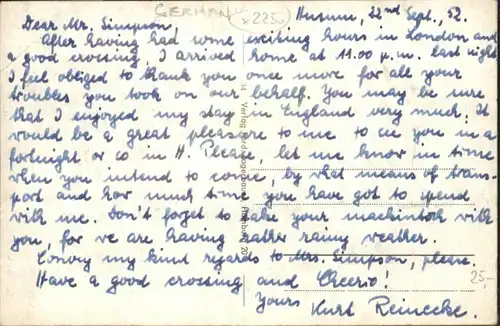 GERMANY x 2250 Husum, 22nd Sept., 52.
Dear Mr. Simpson,
After having had some exciting hours in London and
a good crossing, I arrived home at 11.00 p.m. last night
I feel obliged to thank you once more for all your
troubles you took on our behalf. You may be sure
that I enjoyed my stay in England very much. It
would be a great pleasure to me to see you in a
fortnight or so in H. Please, let me know in time
when you intend to come, by what means of trans-
port and how much time you have got to spend
with me. Don't forget to take your mackintosh with
you, for we are having rather rainy weather.
Convey my kind regards to Mrs. Simpson, please.
Have a good crossing and Cheerio!
25,
Yours Kurt Reinecke.
34 Verlag